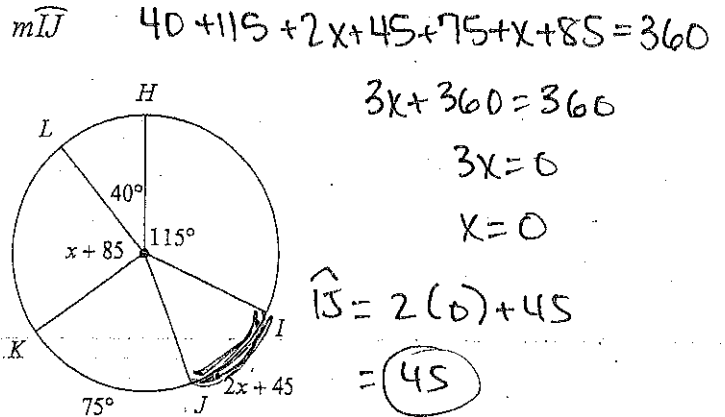 mIJ 40+115+2x+45+75+x+85=360
3x+360=360
3x=0
x=0
IJ = 2(0)+45
= 45
H
L
40°
x + 85
115°
I
K
2x + 45
J
75°